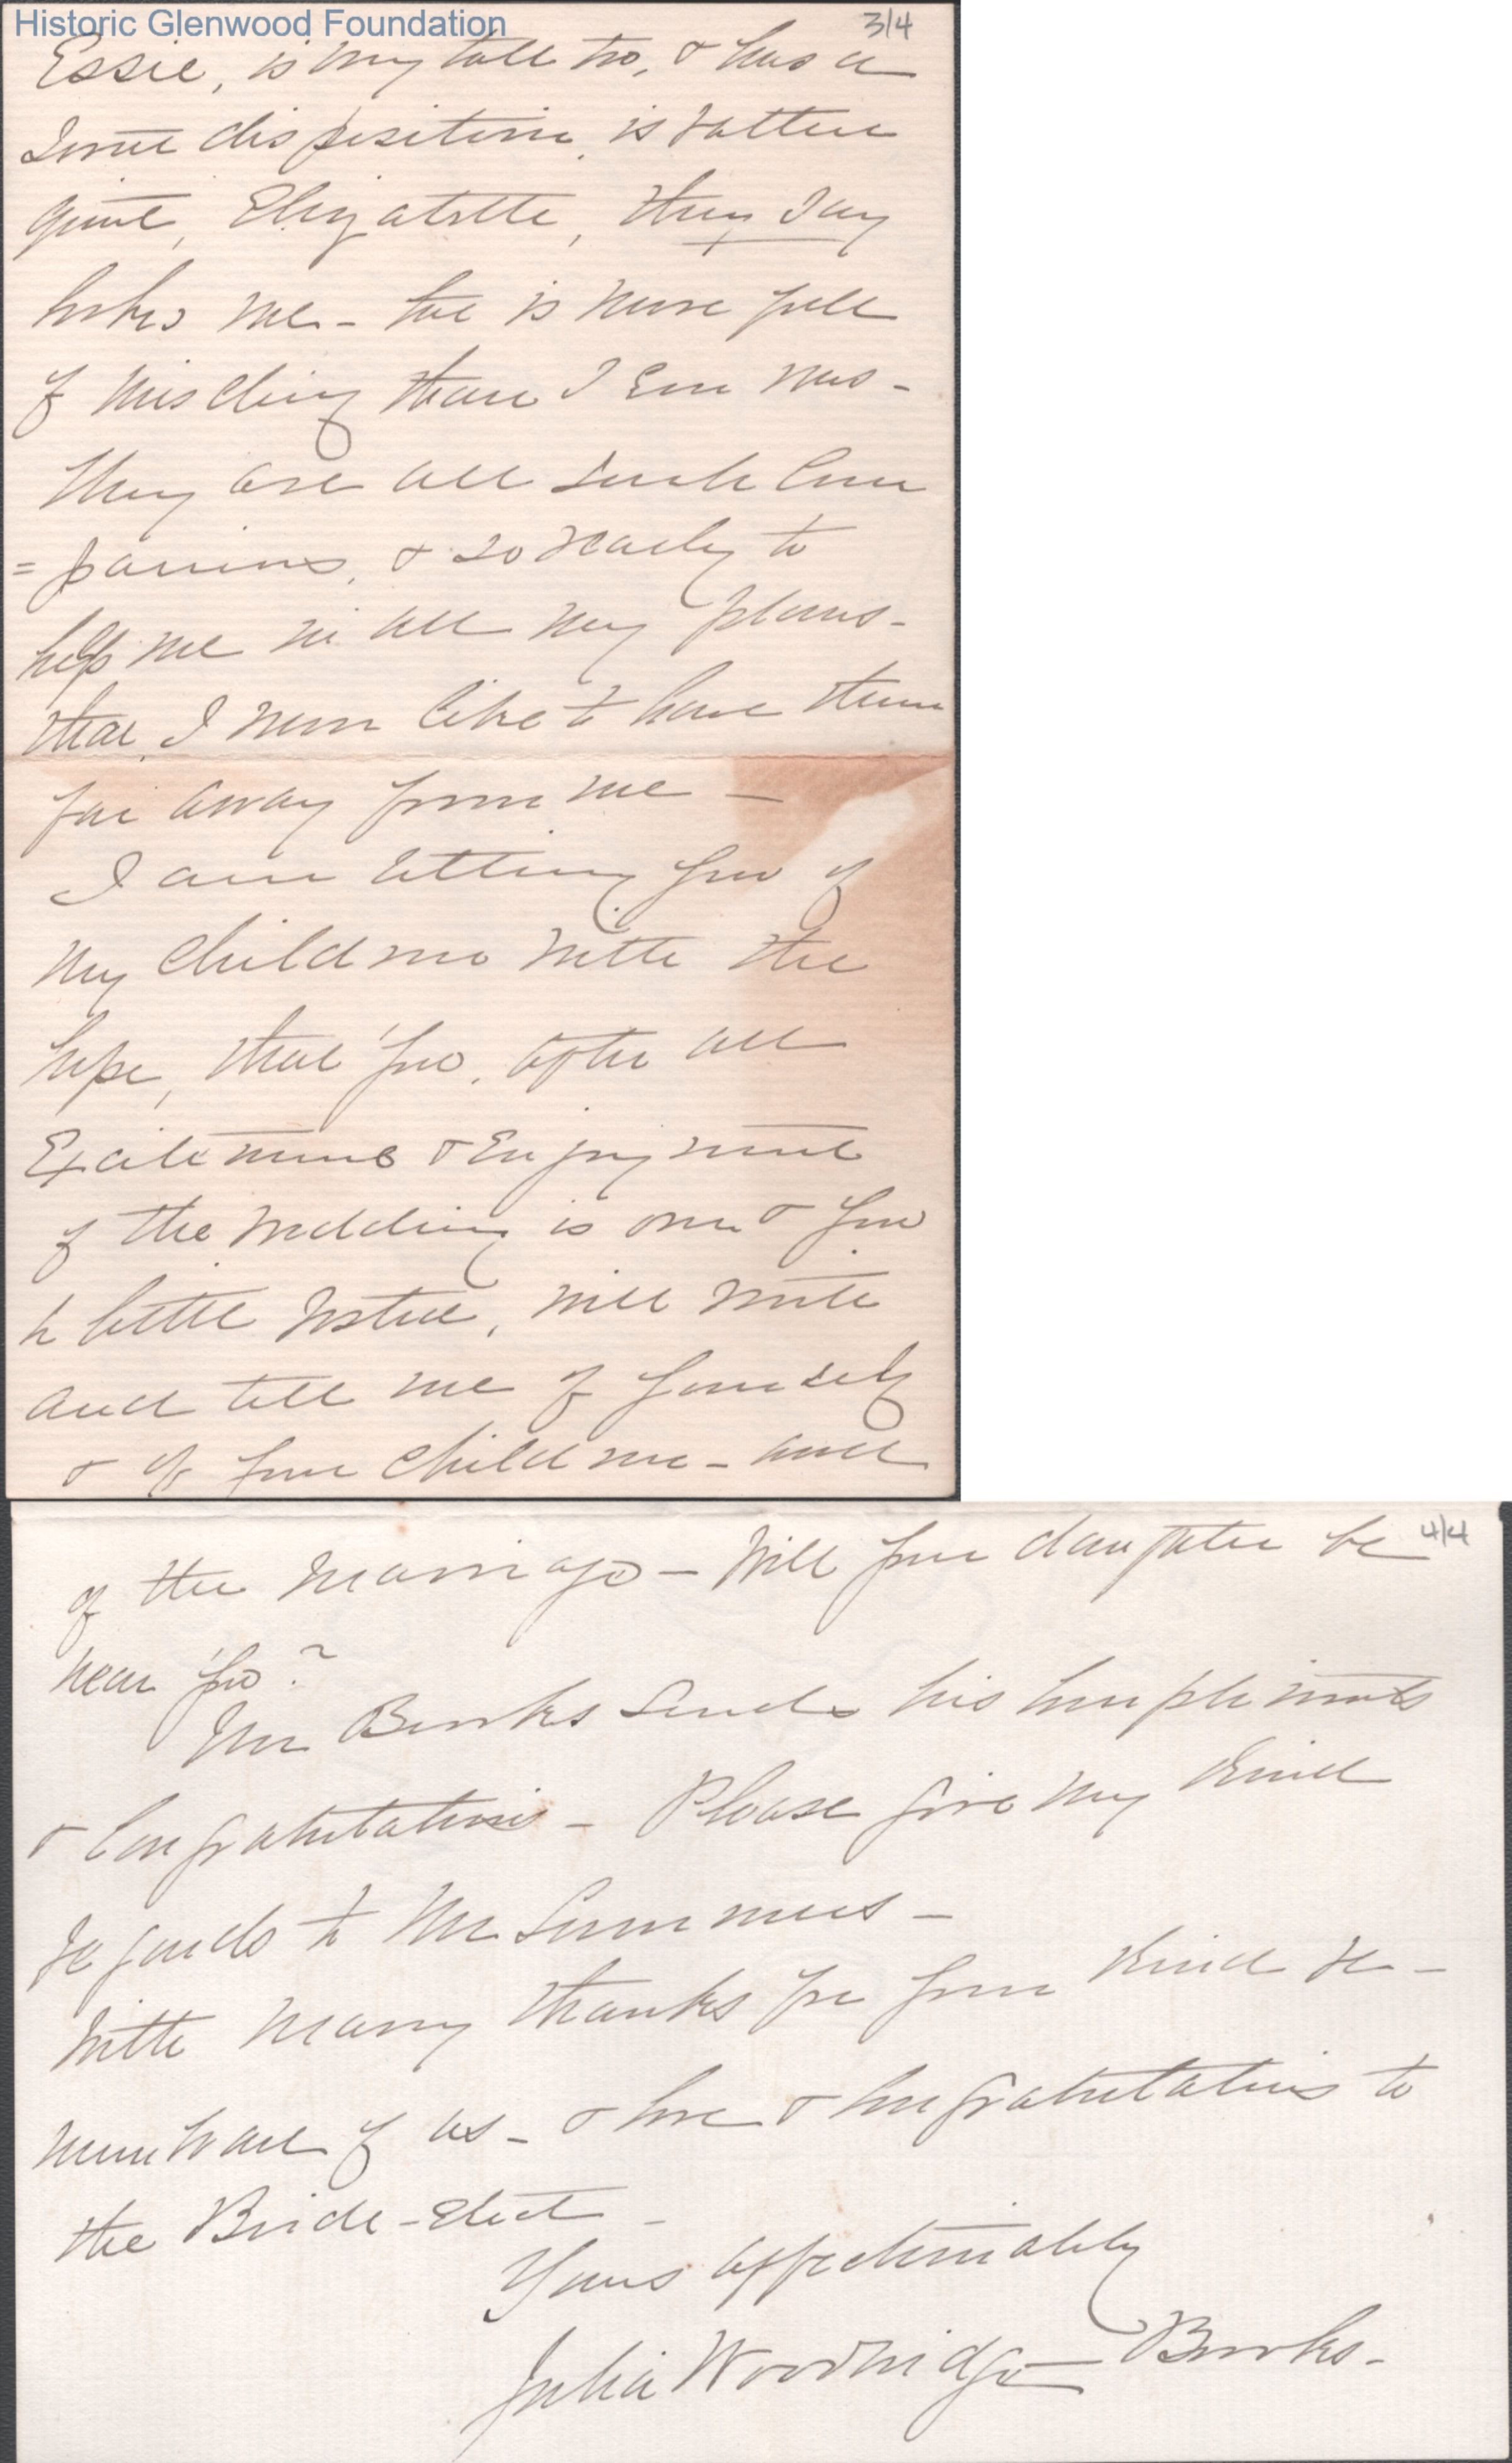 Historic Glenwood Foundation
3/4
Essie, is very tall too, & has a
sweet disposition, is rather
quiet, Elizabeth, they say
looks like me - but is more full
of mischief than I ever was -
They are all such com
= panions, & so ready to
help me in all my plans -
that, I never like to have them
far away from me -
I am telling you of
my children with the
hope, that you, after all
Excitement & Enjoyment
of the wedding is over & you
a little rested, will write
and tell me of yourself
& of your children - and
4/4
of the marriage - Will your daughter be
near you?
Mr Brooks sends his compliments
& Congratulations - Please give my kind
regards to Mr Summers -
With many thanks for your kind re -
membrance of us - & love & congratulations to
the Bride-Elect -
Yours affectionately
Julia Woodbridge Brooks -